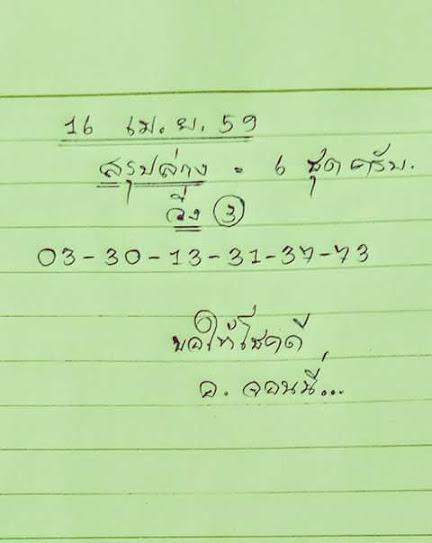 16 เม.ย. 59
สรุปล่าง = 6 ชุดครับ.
วิ่ง 3
03-30-13-31-37-73
ขอให้โชคดี
อ. จอนนี่...